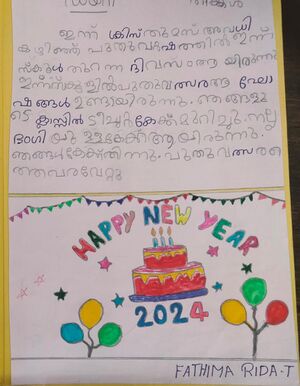 ഡയറി തിങ്കൾ
ഇന്ന് ക്രിസ്തുമസ് അവധി
കഴിഞ്ഞ് പുതുവർഷത്തിൽ ഇന്ന്
സ്കൂൾ തുറന്ന ദിവസം ആയിരുന്നു
ഇന്ന് സ്കൂളിൽ പുതുവത്സര ആഘോ
ഷങ്ങൾ ഉണ്ടായിരുന്നു. ഞങ്ങളു
ടെ ക്ലാസ്സിൽ ടീച്ചർ കേക്ക് മുറിച്ചു. നല്ല
ഭംഗിയു ള്ള കേക്ക് ആയിരുന്നു.
ഞങ്ങൾ കേക്ക് തിന്നു. പുതുവത്സര
ത്തെ വരവേറ്റു
HAPPY NEW YEAR
2024
FATHIMA RIDA.T